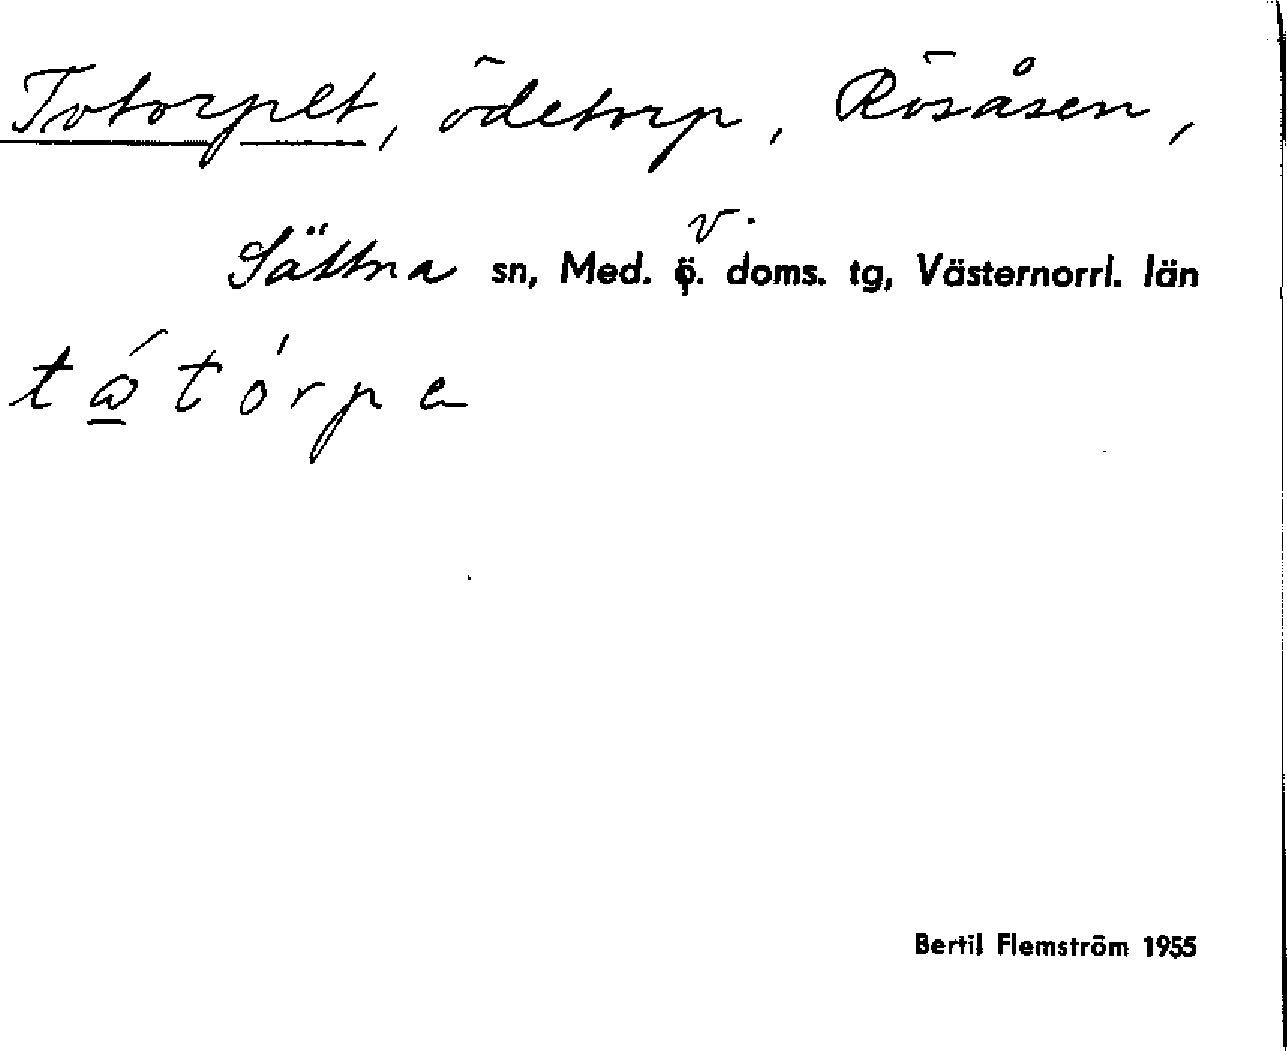 Totorpet, ödetorp, Rösåsen,
Sättna sn, Med. v. doms. tg, Västernorrl. län
Bertil Flemström 1955